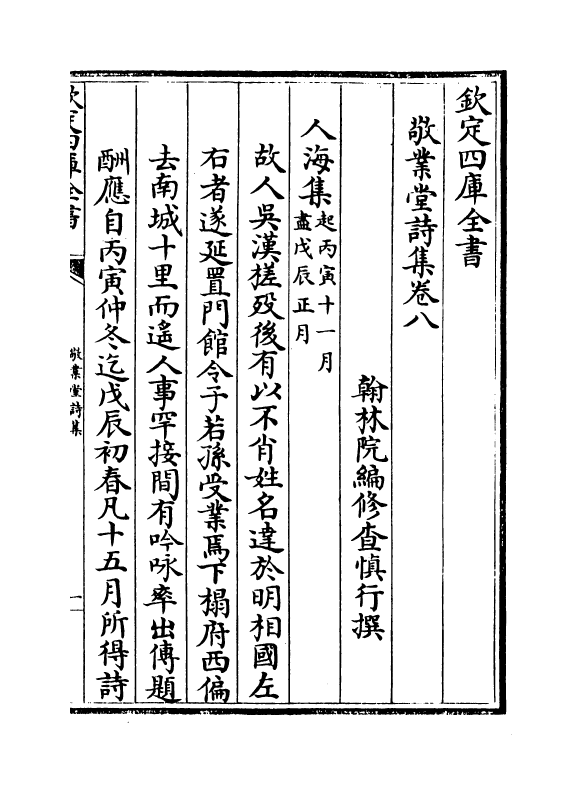 欽定四庫全書
敬業堂詩集卷八
翰林院編修查慎行撰
人海集起丙寅十一月
盡戊辰正月
故人吳漢槎歿後有以不肖姓名達於明相國左
右者遂延置門館令子若孫受業焉下榻府西偏
去南城十里而遙人事罕接間有吟咏率出傳題
酬應自丙寅仲冬迄戊辰初春凡十五月所得詩
欽定四庫全書
敬業堂詩集
一